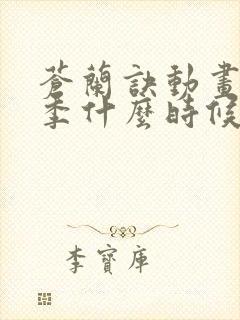 蒼蘭訣動畫
季什麼時候
李寶庫